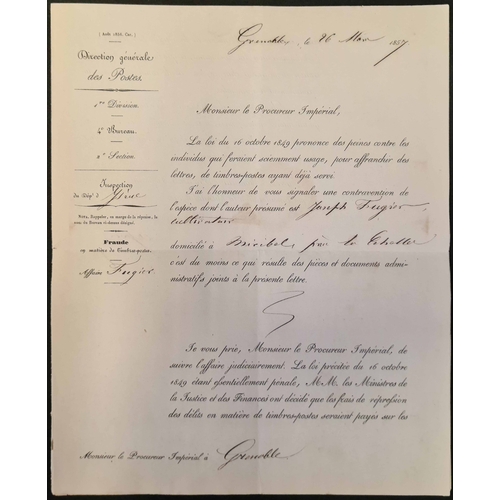 (Août 1856. Car.)
Direction générale
des Postes.
1ère Division.
4e Bureau.
2e Section.
Inspection
du Dépt d'Isère
Nota. Rappeler, en marge de la réponse, le
nom du Bureau ci-dessus désigné.
Fraude
en matière de timbres-postes.
Affaire Fugier
Grenoble, le 26 Mars 1857
Monsieur le Procureur Impérial,
La loi du 16 octobre 1849 prononce des peines contre les
individus qui feraient sciemment usage, pour affranchir des
lettres, de timbres-postes ayant déjà servi.
J'ai l'honneur de vous signaler une contravention de
l'espèce dont l'auteur présumé est Joseph Fugier
cultivateur
domicilié à Miribel, près les Echelles
c'est du moins ce qui résulte des pièces et documents admi-
nistratifs joints à la présente lettre.
Je vous prie, Monsieur le Procureur Impérial, de
suivre l'affaire judiciairement. La loi précitée du 16 octobre
1849 étant essentiellement pénale, M.M. les Ministres de
la Justice et des Finances ont décidé que les frais de répression
des délits en matière de timbres-postes seraient payés sur les
Monsieur le Procureur Impérial à Grenoble